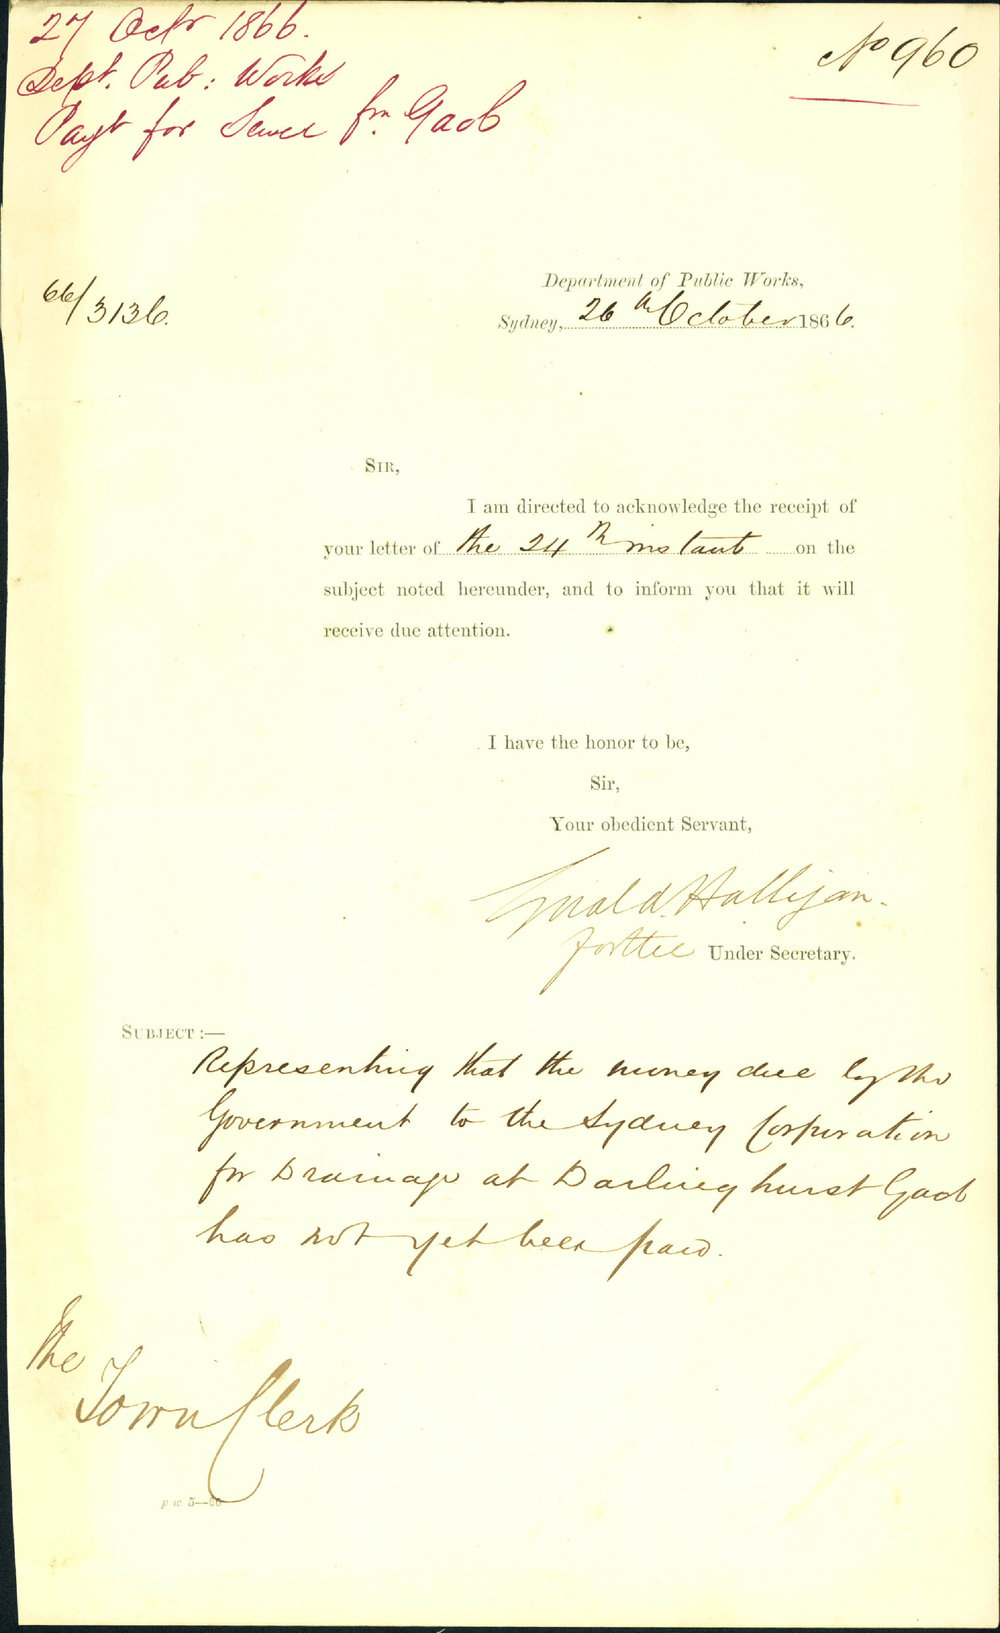 27 Octr 1866.
Dept. Pub: Works
Payt for Sewer fm. Gaol
No 960
66/3136.
Department of Public Works,
Sydney, 26th October 1866.
SIR,
I am directed to acknowledge the receipt of
your letter of the 24th instant on the
subject noted hereunder, and to inform you that it will
receive due attention.
I have the honor to be,
Sir,
Your obedient Servant,
Gerald Halligan.
for the Under Secretary.
SUBJECT :—
Representing that the money due by the
Government to the Sydney Corporation
for Drainage at Darlinghurst Gaol
has not yet been paid.
The
Town Clerk
p w 5—66